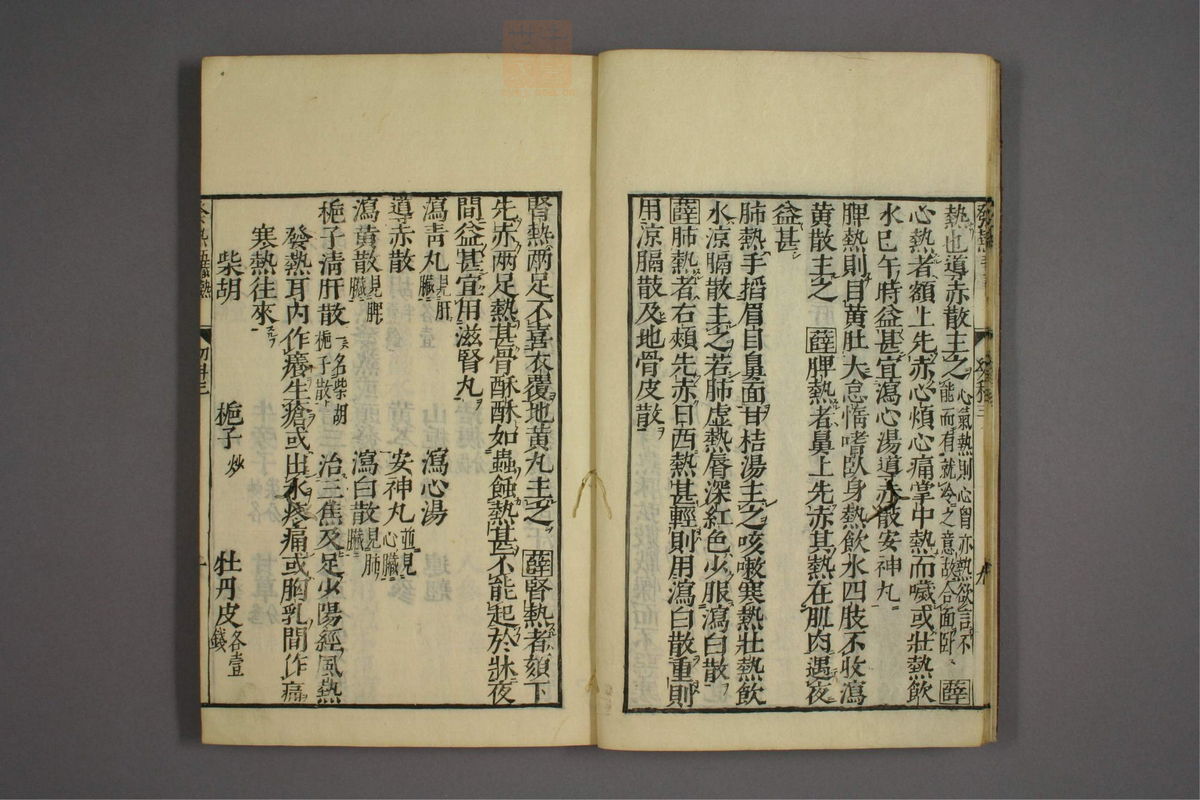 熱也導赤散主之心氣熱則心胷亦熱欲言不能而有就冷之意故合面卧、薛
心熱者額上先赤心煩心痛掌中熱而噦或壯熱飲
水巳午時益甚宜瀉心湯導赤散安神丸
脾熱則目黃肚大怠惰嗜卧身熱飲水四肢不收瀉
黃散主之 薛脾熱者鼻上先赤其熱在肌肉遇夜
益甚
肺熱手掐眉目鼻面甘桔湯主之咳嗽寒熱壯熱飲
水涼膈散主之若肺虛熱唇深紅色少服瀉白散
薛肺熱者右頰先赤日西熱甚輕則用瀉白散重則
用涼膈散及地骨皮散
腎熱兩足不喜衣覆地黃丸主之 薛腎熱者頦下
先赤兩足熱甚骨酥酥如蟲蝕熱甚不能起於牀夜
間益甚宜用滋腎丸
瀉青丸見肝臟 瀉心湯
導赤散 安神丸並見心臟
瀉黃散見脾臟 瀉白散見肺臟
梔子清肝散一名柴胡梔子散 治三焦及足少陽經風熱
發熱耳內作癢生瘡或出水疼痛或胸乳間作痛
寒熱往來
柴胡 梔子炒 牡丹皮各壹錢